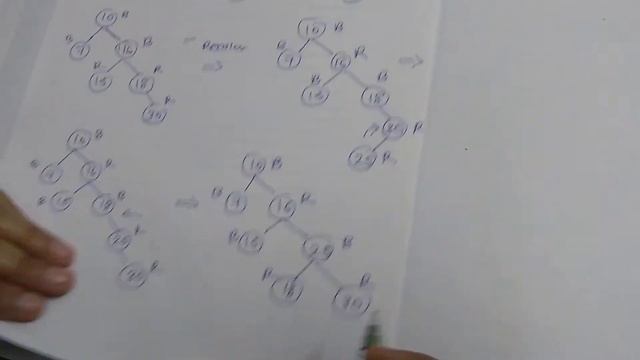 10 B
B 7 16 B
R 15 18 R
R
Recolor
10 B
B 7 16 R
B 15 18 B
R
25 R
10 B
B 7 16 R
B 15 18 B
25 R
R
10 B
B 7 16 R
B 15 25 B
R 18 30 R